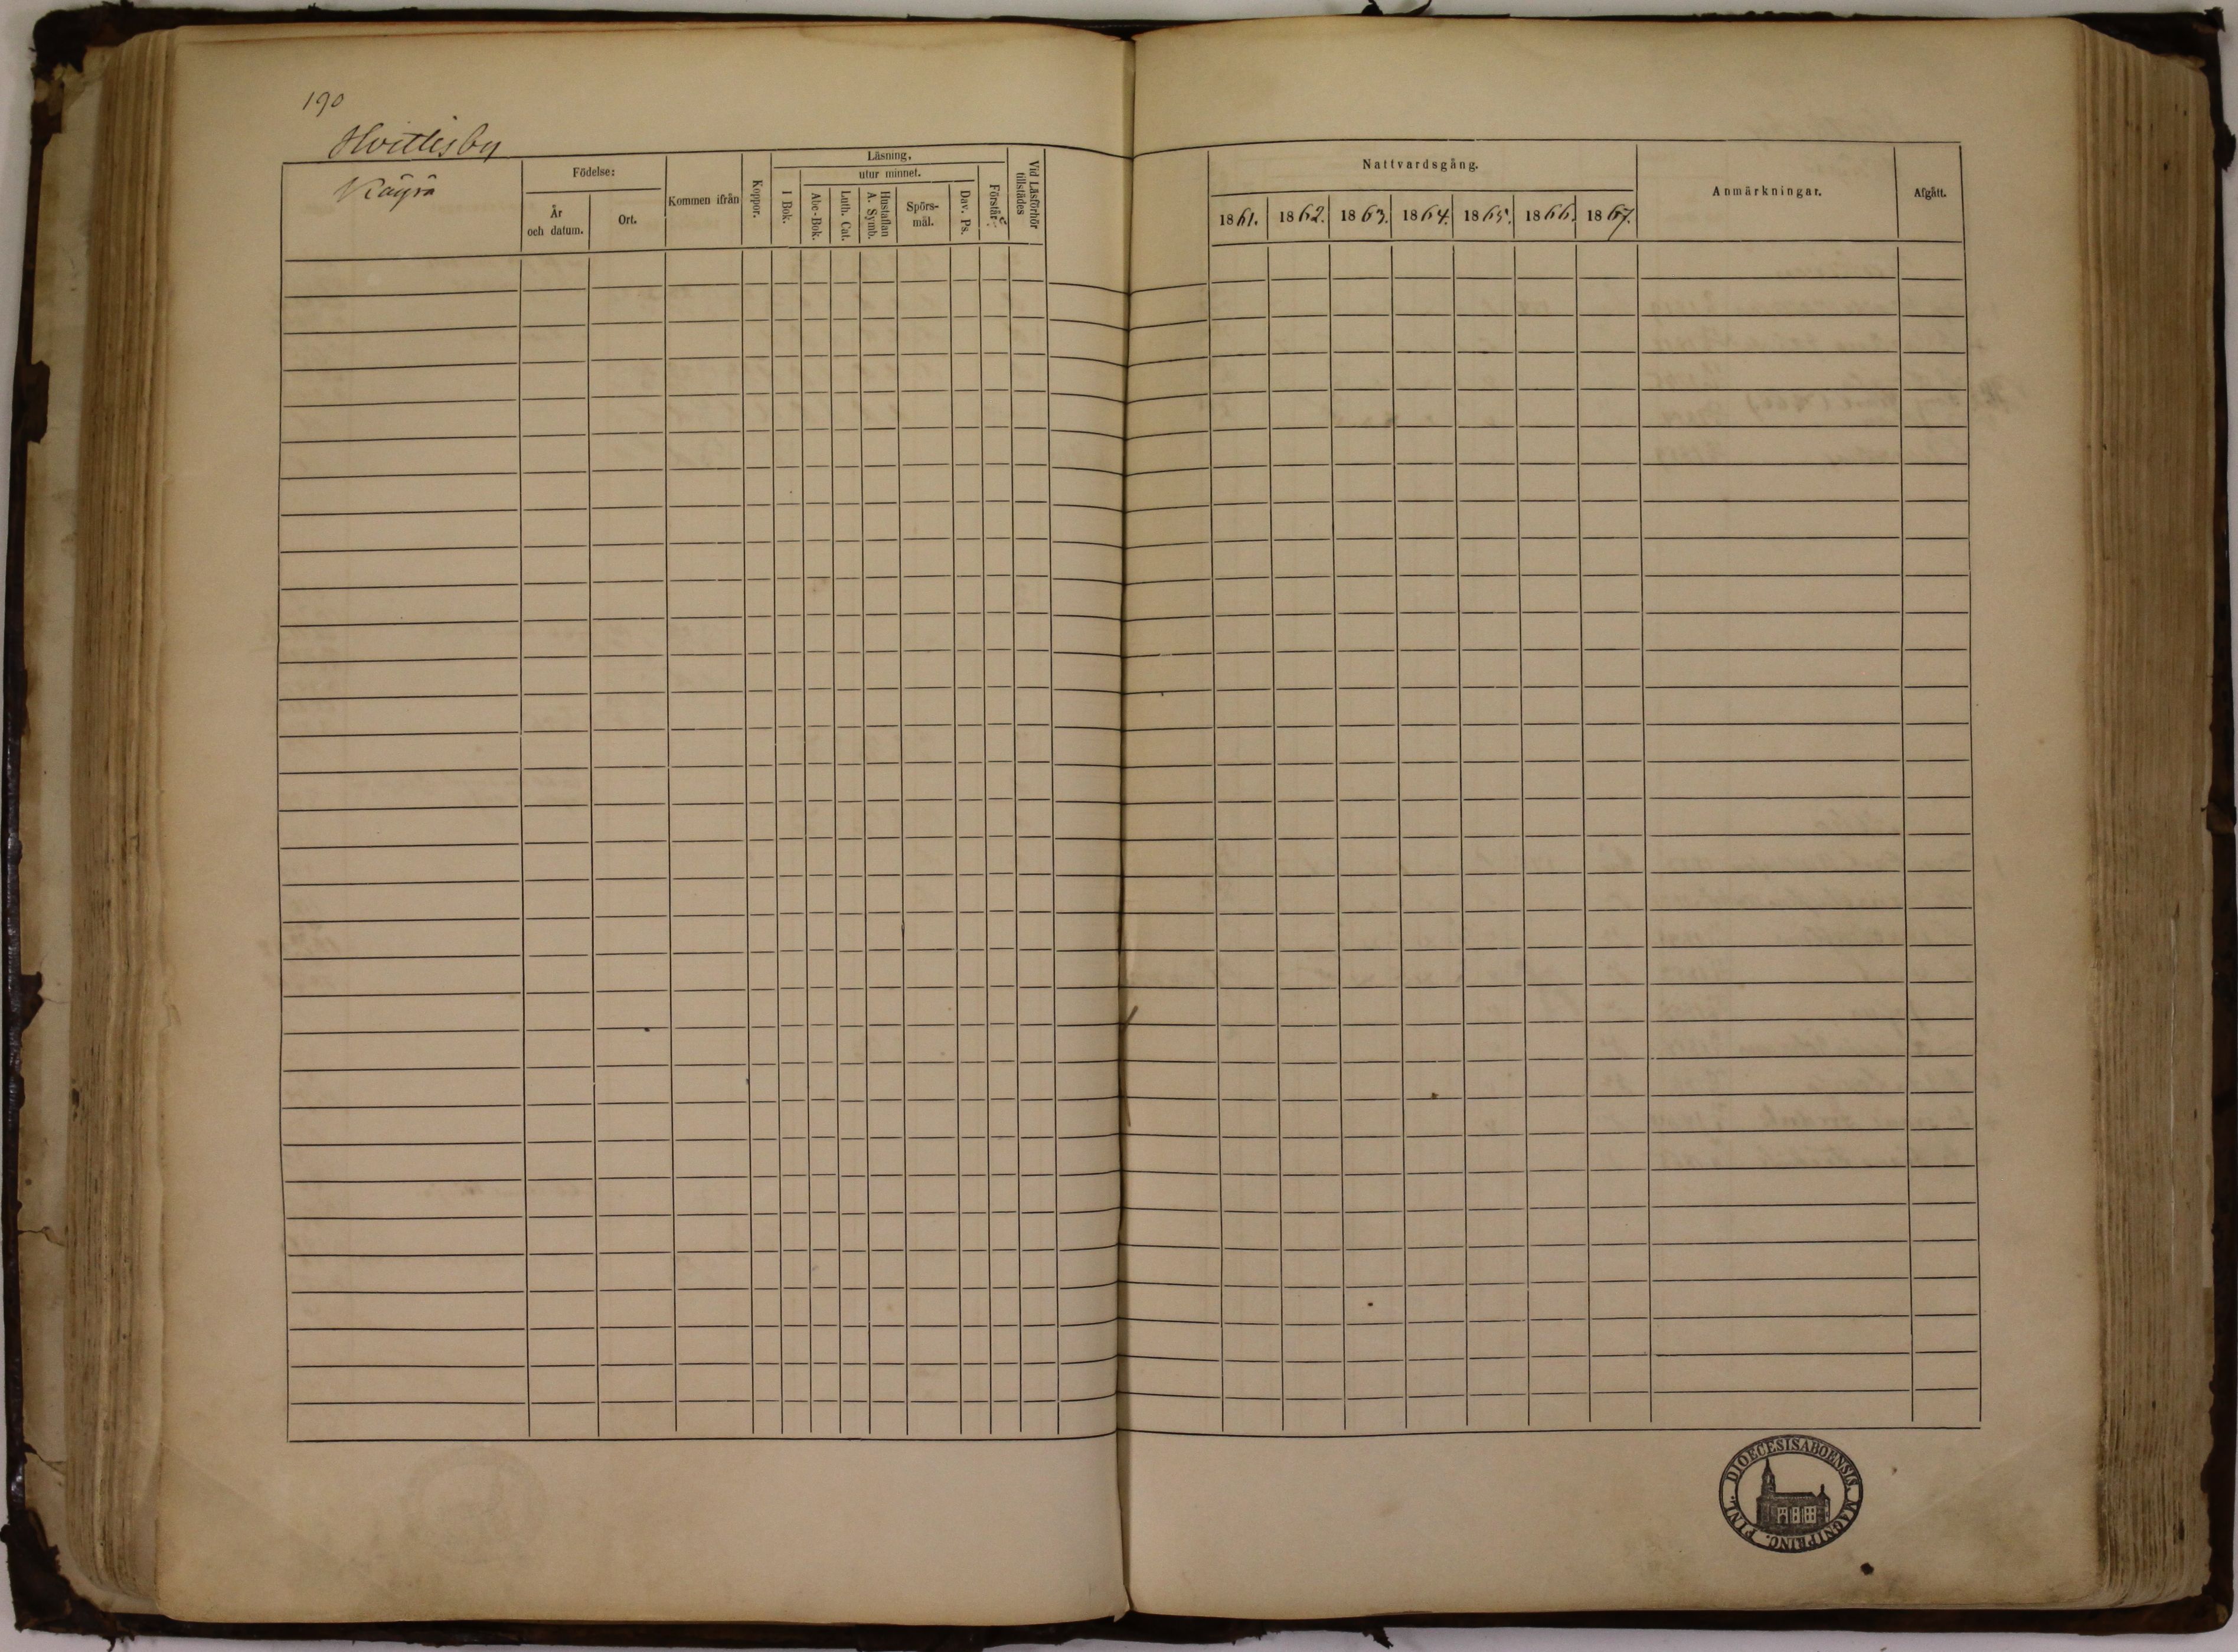 190
Hvittisby
Käyrä
Födelse:
År
och datum.
Ort.
Kommen ifrån
Koppor.
Läsning.
utur minnet.
I Bok.
Abc-Bok.
Luth. Cat.
Hustaflan
A. Symb.
Spörs-
mål.
Dav. Ps.
Förstår
Vid Läsförhör
tillstädes
Nattvardsgång.
1861. 1862. 1863. 1864. 1865. 1866. 1867.
Anmärkningar.
Afgått.
DIOECESIS ABOENSIS. MAGNI PRINC. FINL.